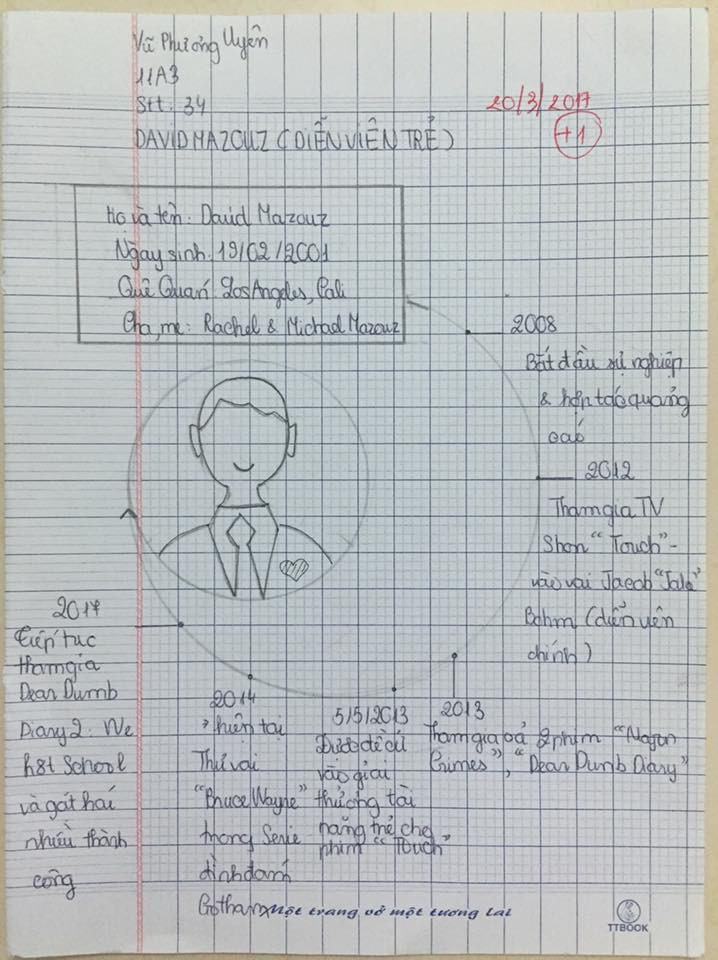 Vũ Phương Uyên
11A3
Stt: 34
20/3/2017
+1
DAVID MAZOUZ (DIỄN VIÊN TRẺ)
Họ và tên: David Mazouz
Ngày sinh: 19/02/2001
Quê Quán: Los Angeles, Cali
Cha, mẹ: Rachel & Michad Mazouz
2008
Bắt đầu sự nghiệp
& hợp tác quảng
cáo
2012
Tham gia TV
Show "Touch" -
vào vai Jacob "Jake"
Bohm (diễn viên
chính)
2013
Tham gia cả 2 phim "Major
Crimes", "Dear Dumb Diary"
5/5/2013
Được đề cử
vào giải
thưởng tài
năng trẻ cho
phim "Touch"
2014
> hiện tại
Thủ vai
"Bruce Wayne"
trong Serie
đình đám
Gotham
2017
Tiếp tục
tham gia
Dear Dumb
Diary 2: We
h8t School
và gặt hái
nhiều thành
công
Một trang vở một tương lai
TTBOOK